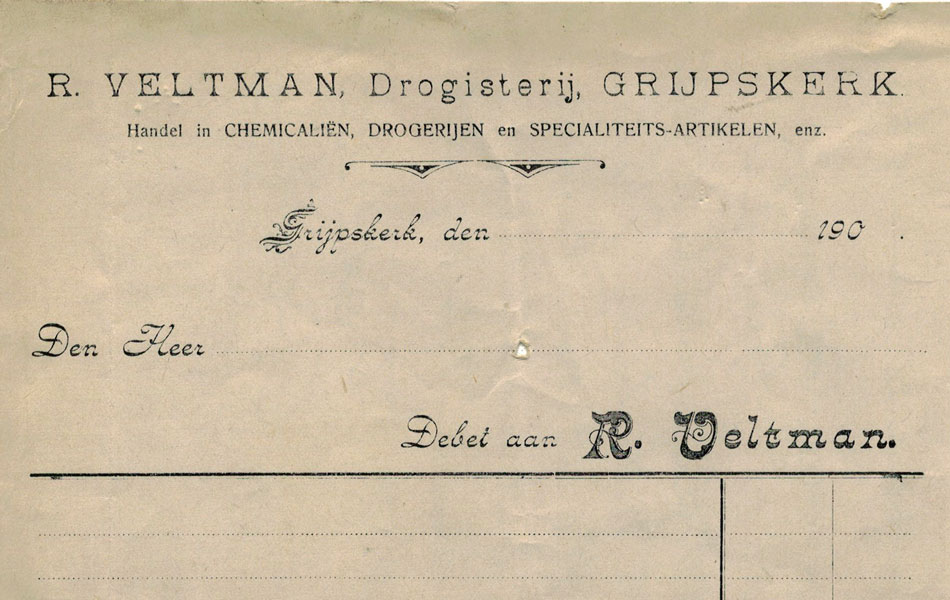 R. VELTMAN, Drogisterij, GRIJPSKERK.
Handel in CHEMICALIËN, DROGERIJEN en SPECIALITEITS-ARTIKELEN, enz.
Grijpskerk, den 190 .
Den Heer
Debet aan R. Veltman.